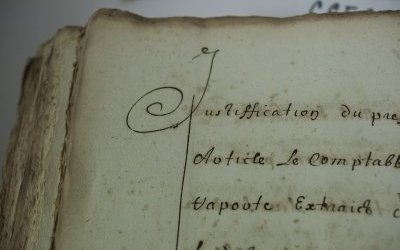 Justiffication du pre
Article Le Comptab
Rapoute Extraict